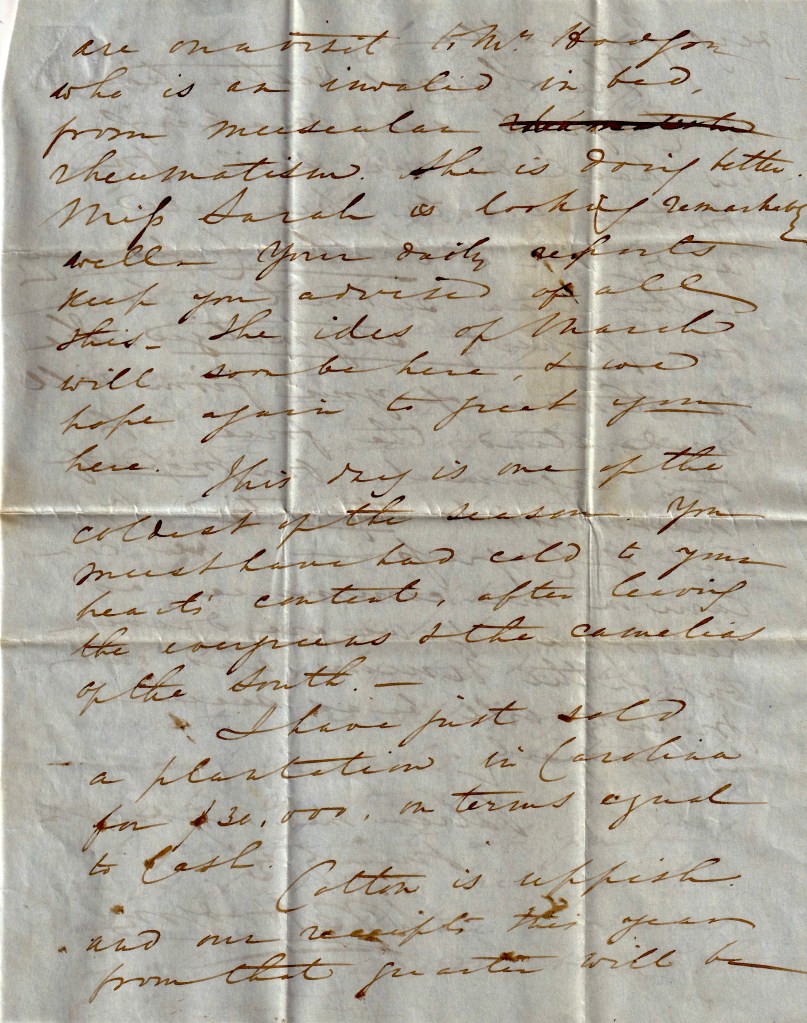 are on a visit to Mrs Hodgson
who is an invalid in bed,
from muscular
rheumatism. She is doing better.
Miss Sarah is looking remarkably
well – Your daily reports
keep you advised of all
this – The ides of March
will soon be here, & we
hope again to greet you
here. This day is one of the
coldest of the season. You
must have had cold to your
heart's content, after leaving
the evergreens & the camelias
of the South. –
I have just sold
a plantation in Carolina
for $30,000, on terms equal
to Cash.
Cotton is uppish
and our receipts this year
from that quarter will be